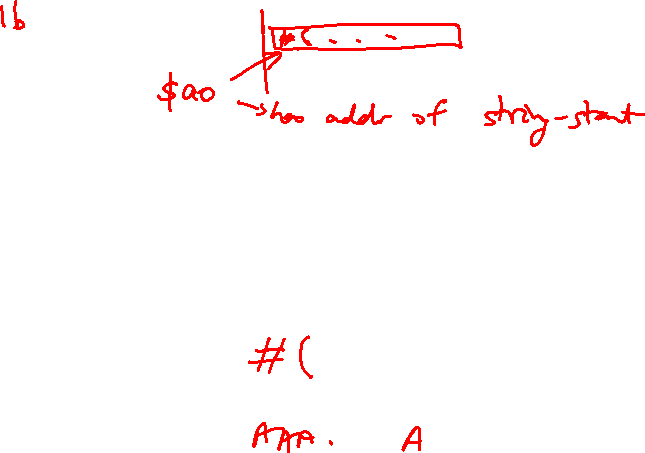 lb
# ( . . .
$a0
→ has addr of string-start
# (
AAA. A